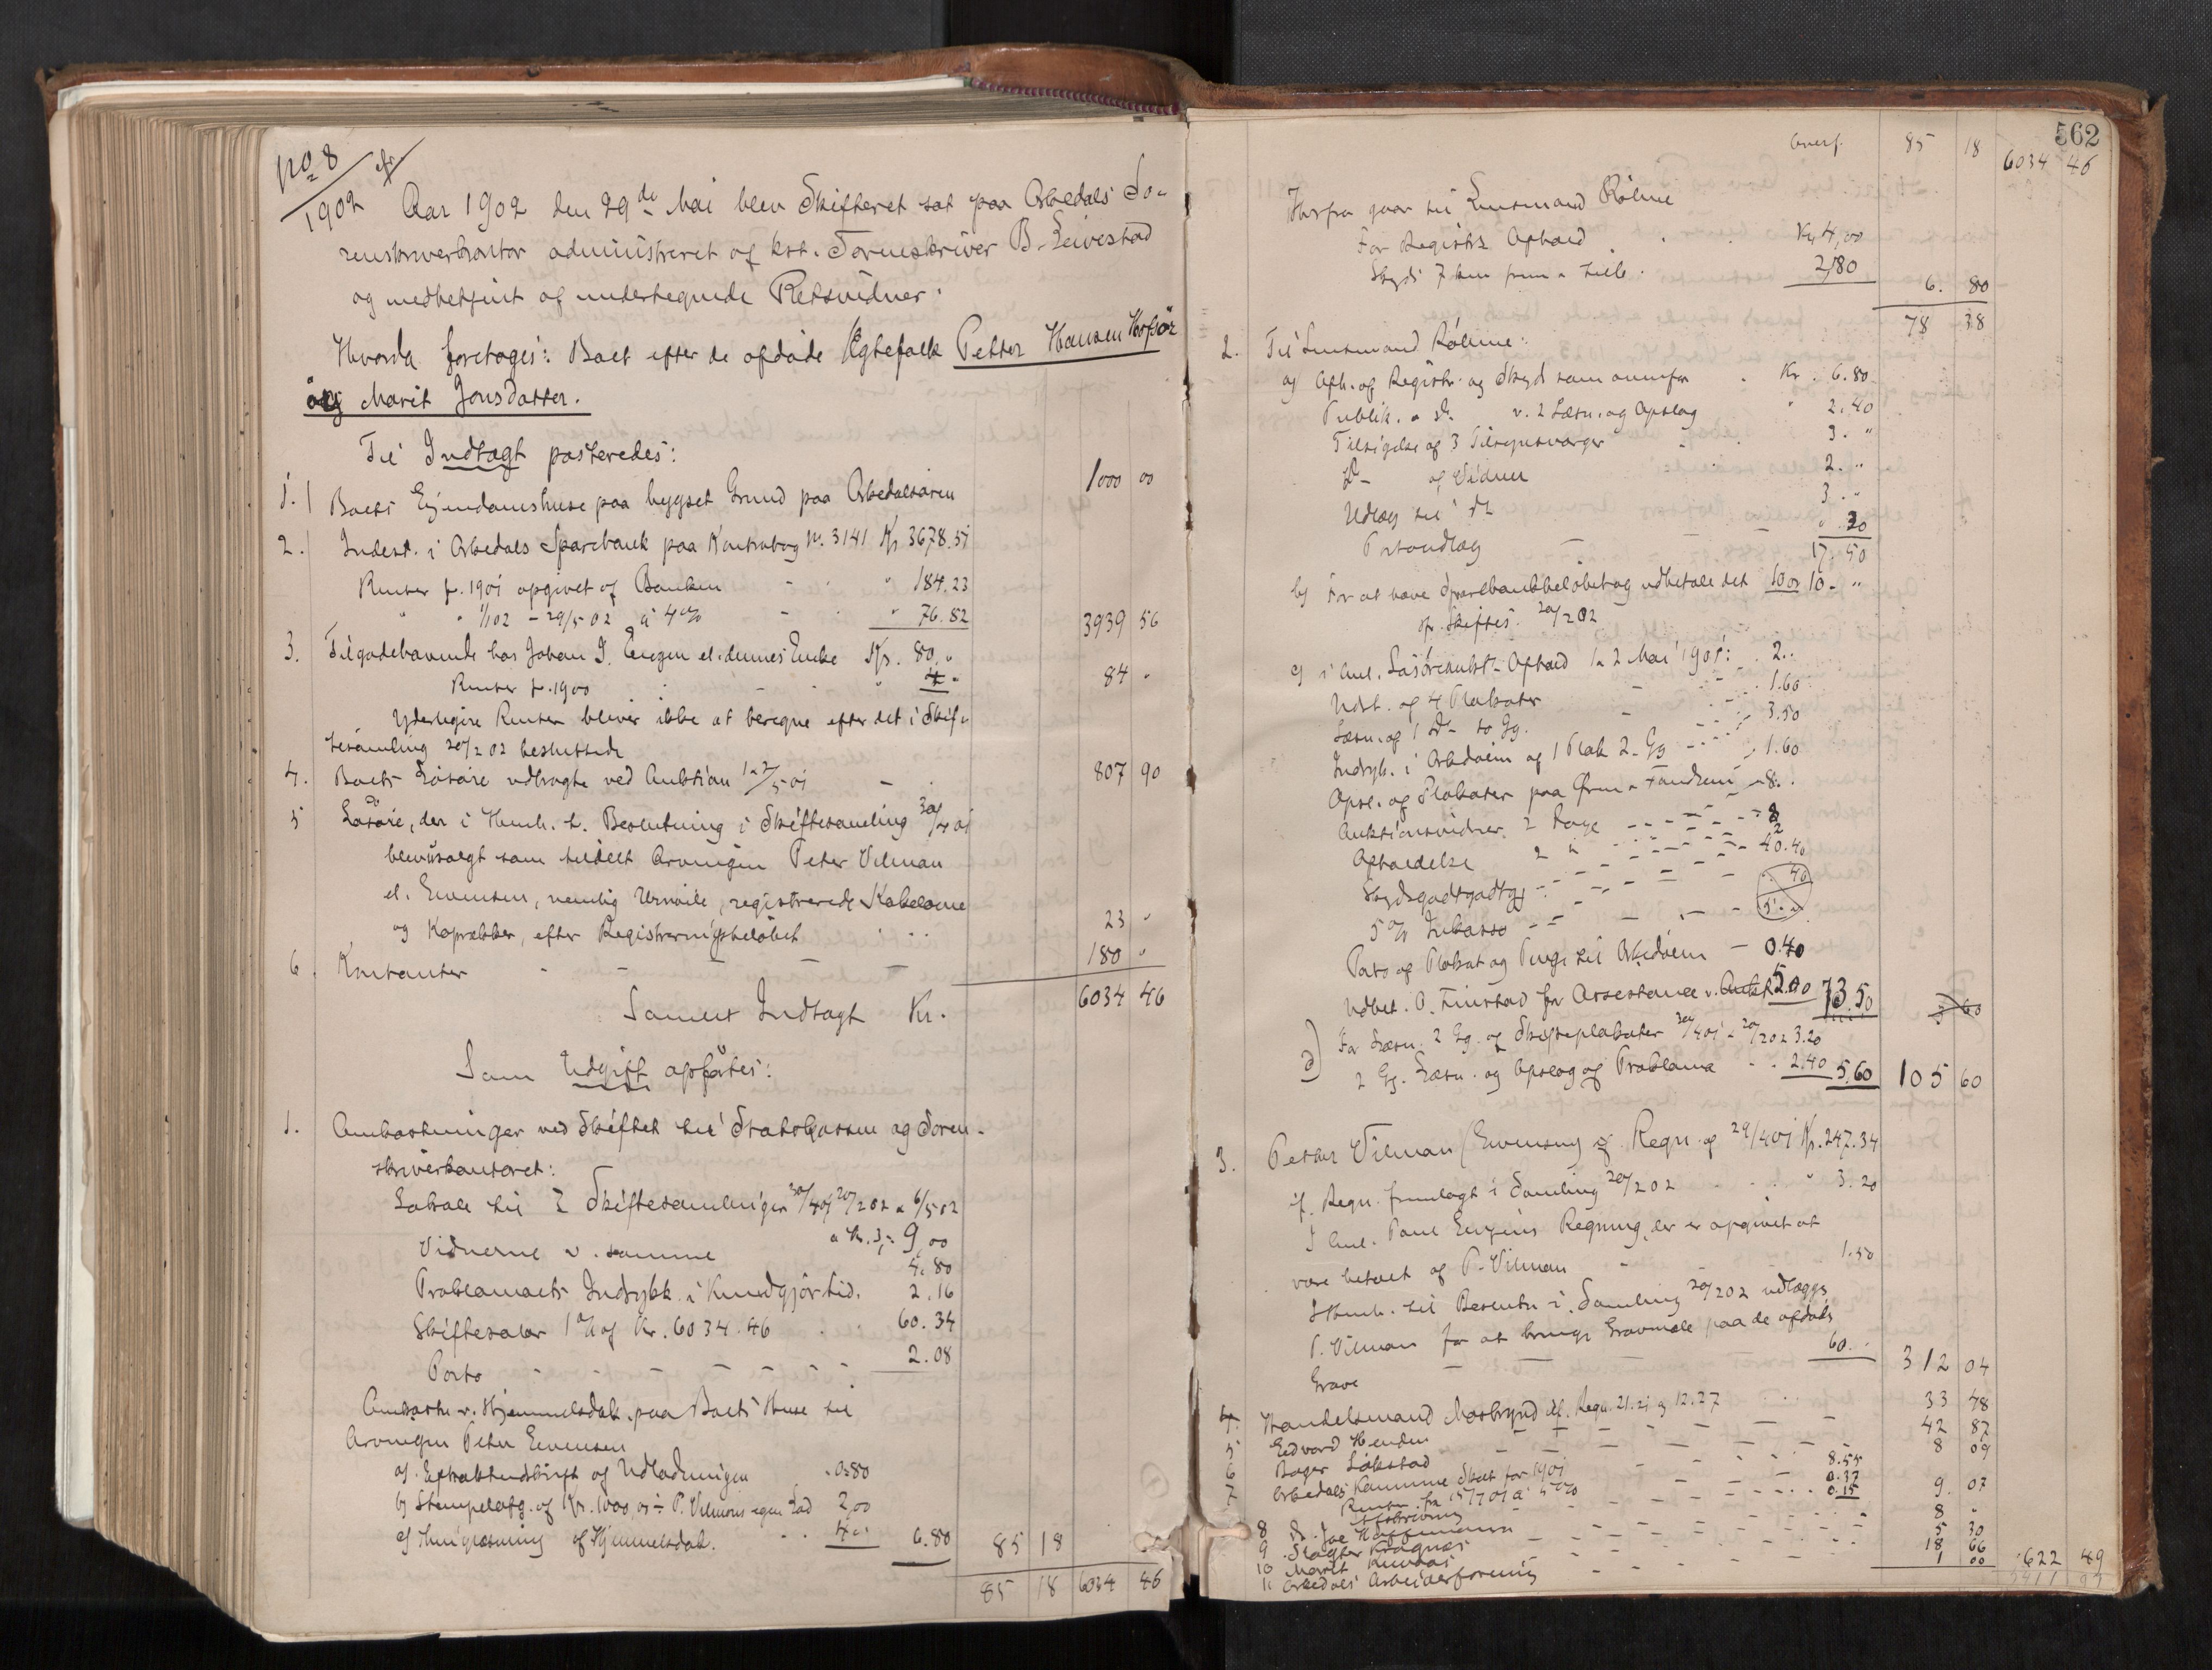 No 8
1902
Aar 1902 den 29de Mai blev Skifteret sat paa Orkedals So-
renskriverkontor administreret af kst. Sorenskriver B. Leivestad
og medbetjent af undertegnede Retsvidner:
Hvorda foretoges: Boet efter de afdøde Ægtefolk Petter Hansen Hofsør
og Marit Jonsdatter.
Til Indtægt posteredes:
1. Boets Ejendomshuse paa bygset Grund paa Orkedalsøren 1000 00
2. Indest. i Orkedals Sparebank paa Kontrabog No. 3141 Kr 3678.51
Renter f. 1901 opgivet af Banken " 184.23
" " 1/1 02 - 29/5 02 à 4% " 76.82 3939 56
3. Tilgodehavende hos Johan J. Engen el. dennes Enke Kr. 80."
Renter f. 1900 " 4." 84 "
Yderligere Renter bliver ikke at beregne efter det i Skif-
tesamling 20/2 02 besluttede
4. Boets Løsøre udbragte ved Auktion 1 & 2/5 01 807 90
5 Løsøre, der i Henh. t. Beslutning i Skiftesamling 30/4 01
blev usolgt som tildelt Arvingen Peter Vilman
el. Evensen, nemlig Urmoile, registrerede Kakelovne
og Koprækker, efter Registreringsbeløbet 23 "
6. Kontanter 180 "
Samlet Indtægt Kr. 6034 46
Som Udgift opførtes:
1. Omkostninger ved Skiftet til Statskassen og Soren-
skriverkontoret:
Lokale til 3 Skiftesamlinger 30/4 01 20/2 02 & 6/5 02
a Kr. 3,- 9,00
Vidnerne v. samme 4.80
Proklamaets Indrykk. i Kundgjør.tid. 2.16
Skiftesalær 1% af Kr. 6034.46 60.34
Porto 2.08
Omkostn. v. Hjemmelsdok. paa Boets Huse til
Arvingen Peter Evensen
a) Extraktudskrift af Udlodningen 0.80
b) Stempelafg. af Kr. 1000,00 ÷ P. Vilmans egen Lod 2,00
c) Thinglæsning af Hjemmelsdok. 4." 6.80 85 18
85 18 6034 46
562
Overf. 85 18 6034 46
Herfra gaar til Lensmand Rölme
For Registr. Ophold Kr 4,00
Skyds 7 km frem & tilb. 2,80 6. 80
78 38
2. Til Lensmand Rölme:
a) Oph. og Registr. og Skyds som ovenfor Kr. 6.80
Publik. a d. v. 2 Læsn. og Opslag " 2.40
Tilsigelse af 3 Tilsynsværger 3."
Do af Vidner 2."
Udlæg til do 3."
Portoudlæg " 30
17.50
b) For at hæve Sparebankbeløbet og udbetale det 10 00 10."
ifr. Skiftes. 20/2 02
c) i Anl. Løsøreaukt. Ophold 1 & 2 Mai 1901: 2."
Udst. af 4 Plakater 1.60
Læsn. af 1 do to Gg. 3.50
Indryk. i Orkedølen af 1 Plak 2 Gg 1.60
Opsl. af Plakater paa Ørn & Fandrem 8."
Auktionsvidner 2 Dage 8
Opholdelse 2 "
Skydsgodtgjør. 40
5% Inkasso 40.40
Porto af Plakat og Penge til Orkedølen 0.40
Udbet. O. Finstad for Assistance v. Aukt. 5.00 73.50
d) For Læsn. 2 Gg. af Skifteplakater 30/4 01 & 20/2 02 3.20
2 Gg. Læsn. og Opslag af Proklama 2.40 5.60 105 60
3. Petter Vilman (Evensen) if. Regn. af 29/4 01 Kr. 247.34
if. Regn. fremlagt i Samling 20/2 02 " 3.20
I Anl. Paul Engens Regning, der er opgivet at
være betalt af P. Vilman 1.50
I Henh. til Beslutn. i Samling 20/2 02 udlægges
P. Vilman for at bringe Gravmæle paa de afdødes
Grave 60." 312 04
4. Handelsmand Mosbrynd if. Regn. 21.21 og 12.27 33 48
5 Edvard Henden 42 87
6 Bager Løkstad 8 09
7 Orkedals Kommune Skat for 1901 8.55
Renter fra 15/7 01 à 5% 0.37
Afskrivning 0.15 9. 07
8 D. Joe Hoffmann 8 "
9 Slagter Kragnæs 5 30
10 Marit 18 66
11 Orkedals Arbeiderforening 1 00 622 49